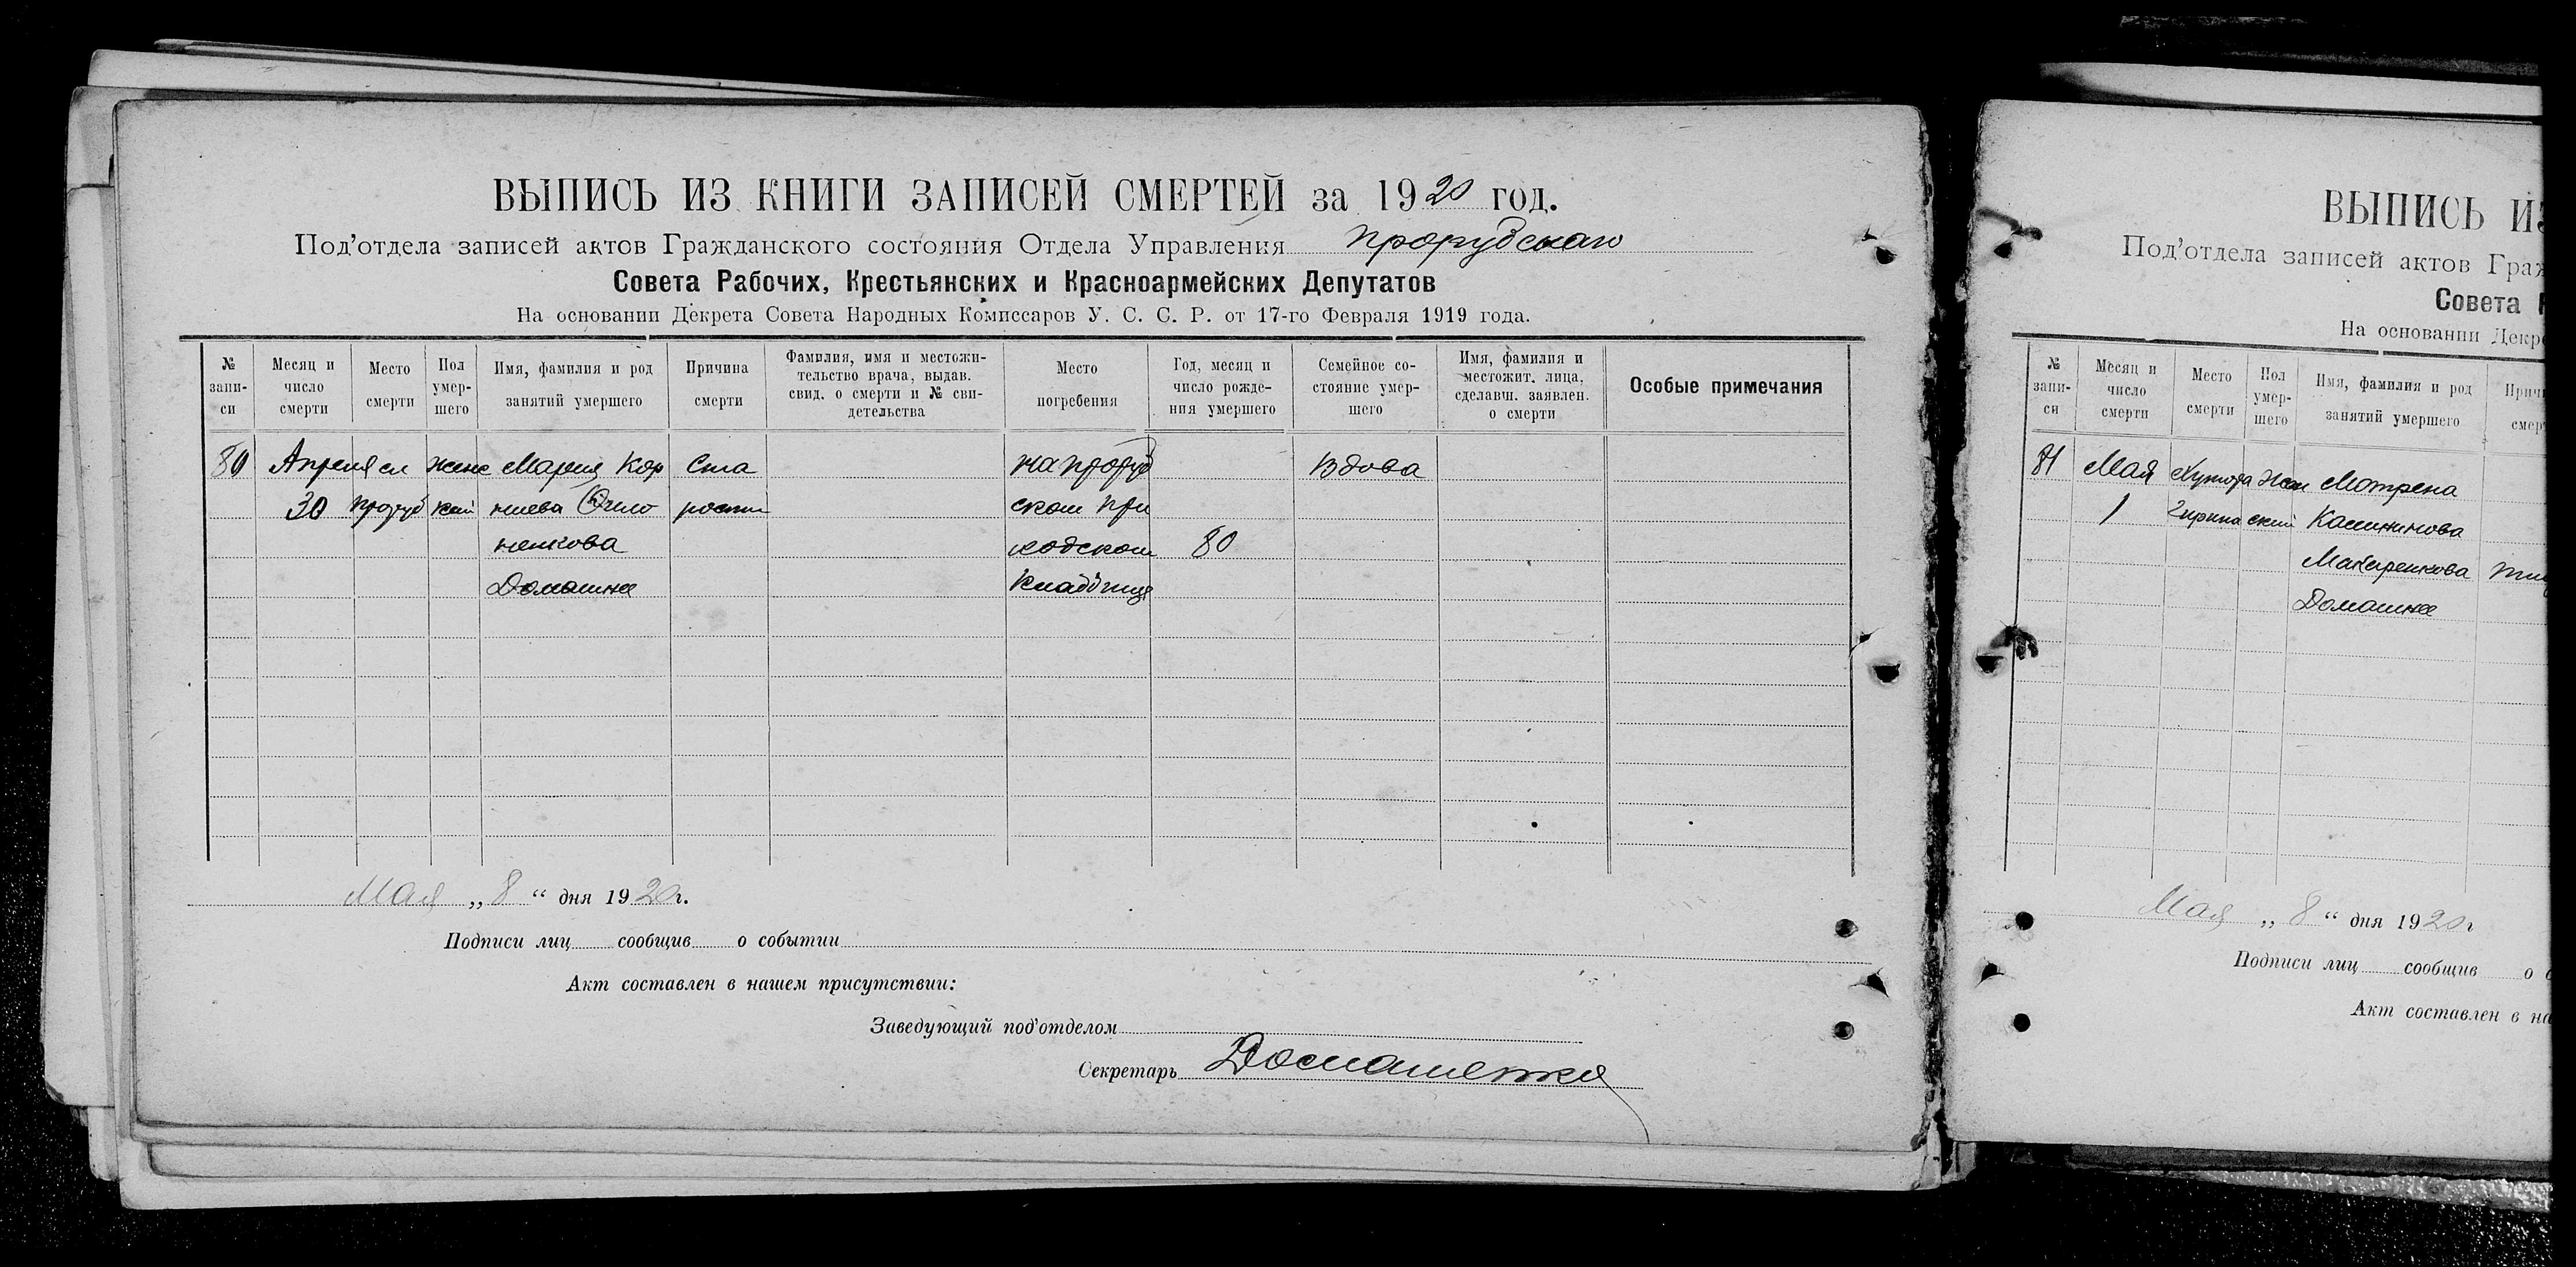 ВЫПИСЬ ИЗ КНИГИ ЗАПИСЕЙ СМЕРТЕЙ за 1920 год.
Под'отдела записей актов Гражданского состояния Отдела Управления Прорубскаго
Совета Рабочих, Крестьянских и Красноармейских Депутатов
На основании Декрета Совета Народных Комиссаров У. С. С. Р. от 17-го Февраля 1919 года.
№ запи- си
Месяц и число смерти
Место смерти
Пол умер- шего
Имя, фамилия и род занятий умершего
Причина смерти
Фамилия, имя и местожи- тельство врача, выдав. свид. о смерти и № сви- детельства
Место погребения
Год, месяц и число рожде- ния умершего
Семейное со- стояние умер- шего
Имя, фамилия и местожит. лица, сделавш. заявлен. о смерти
Особые примечания
80 Апреля сл женс Мария Кор Ста на проруб Вдова
30 проруб кий ниева рости ском при
ненкова ходском 80
Домашнее кладбище
Мая „ 8 “ дня 1920г.
Подписи лиц сообщив о событии
Акт составлен в нашем присутствии:
Заведующий под'отделом
Секретарь
ВЫПИСЬ ИЗ
Под'отдела записей актов Граж
Совета Р
На основании Декр
№ запи- си
Месяц и число смерти
Место смерти
Пол умер- шего
Имя, фамилия и род занятий умершего
Причи смер
81 Мая Хутора жен Мотрена
1 ский Калинникова
Макаренкова
Домашнее
Мая „ 8 “ дня 1920г
Подписи лиц сообщив о с
Акт составлен в на